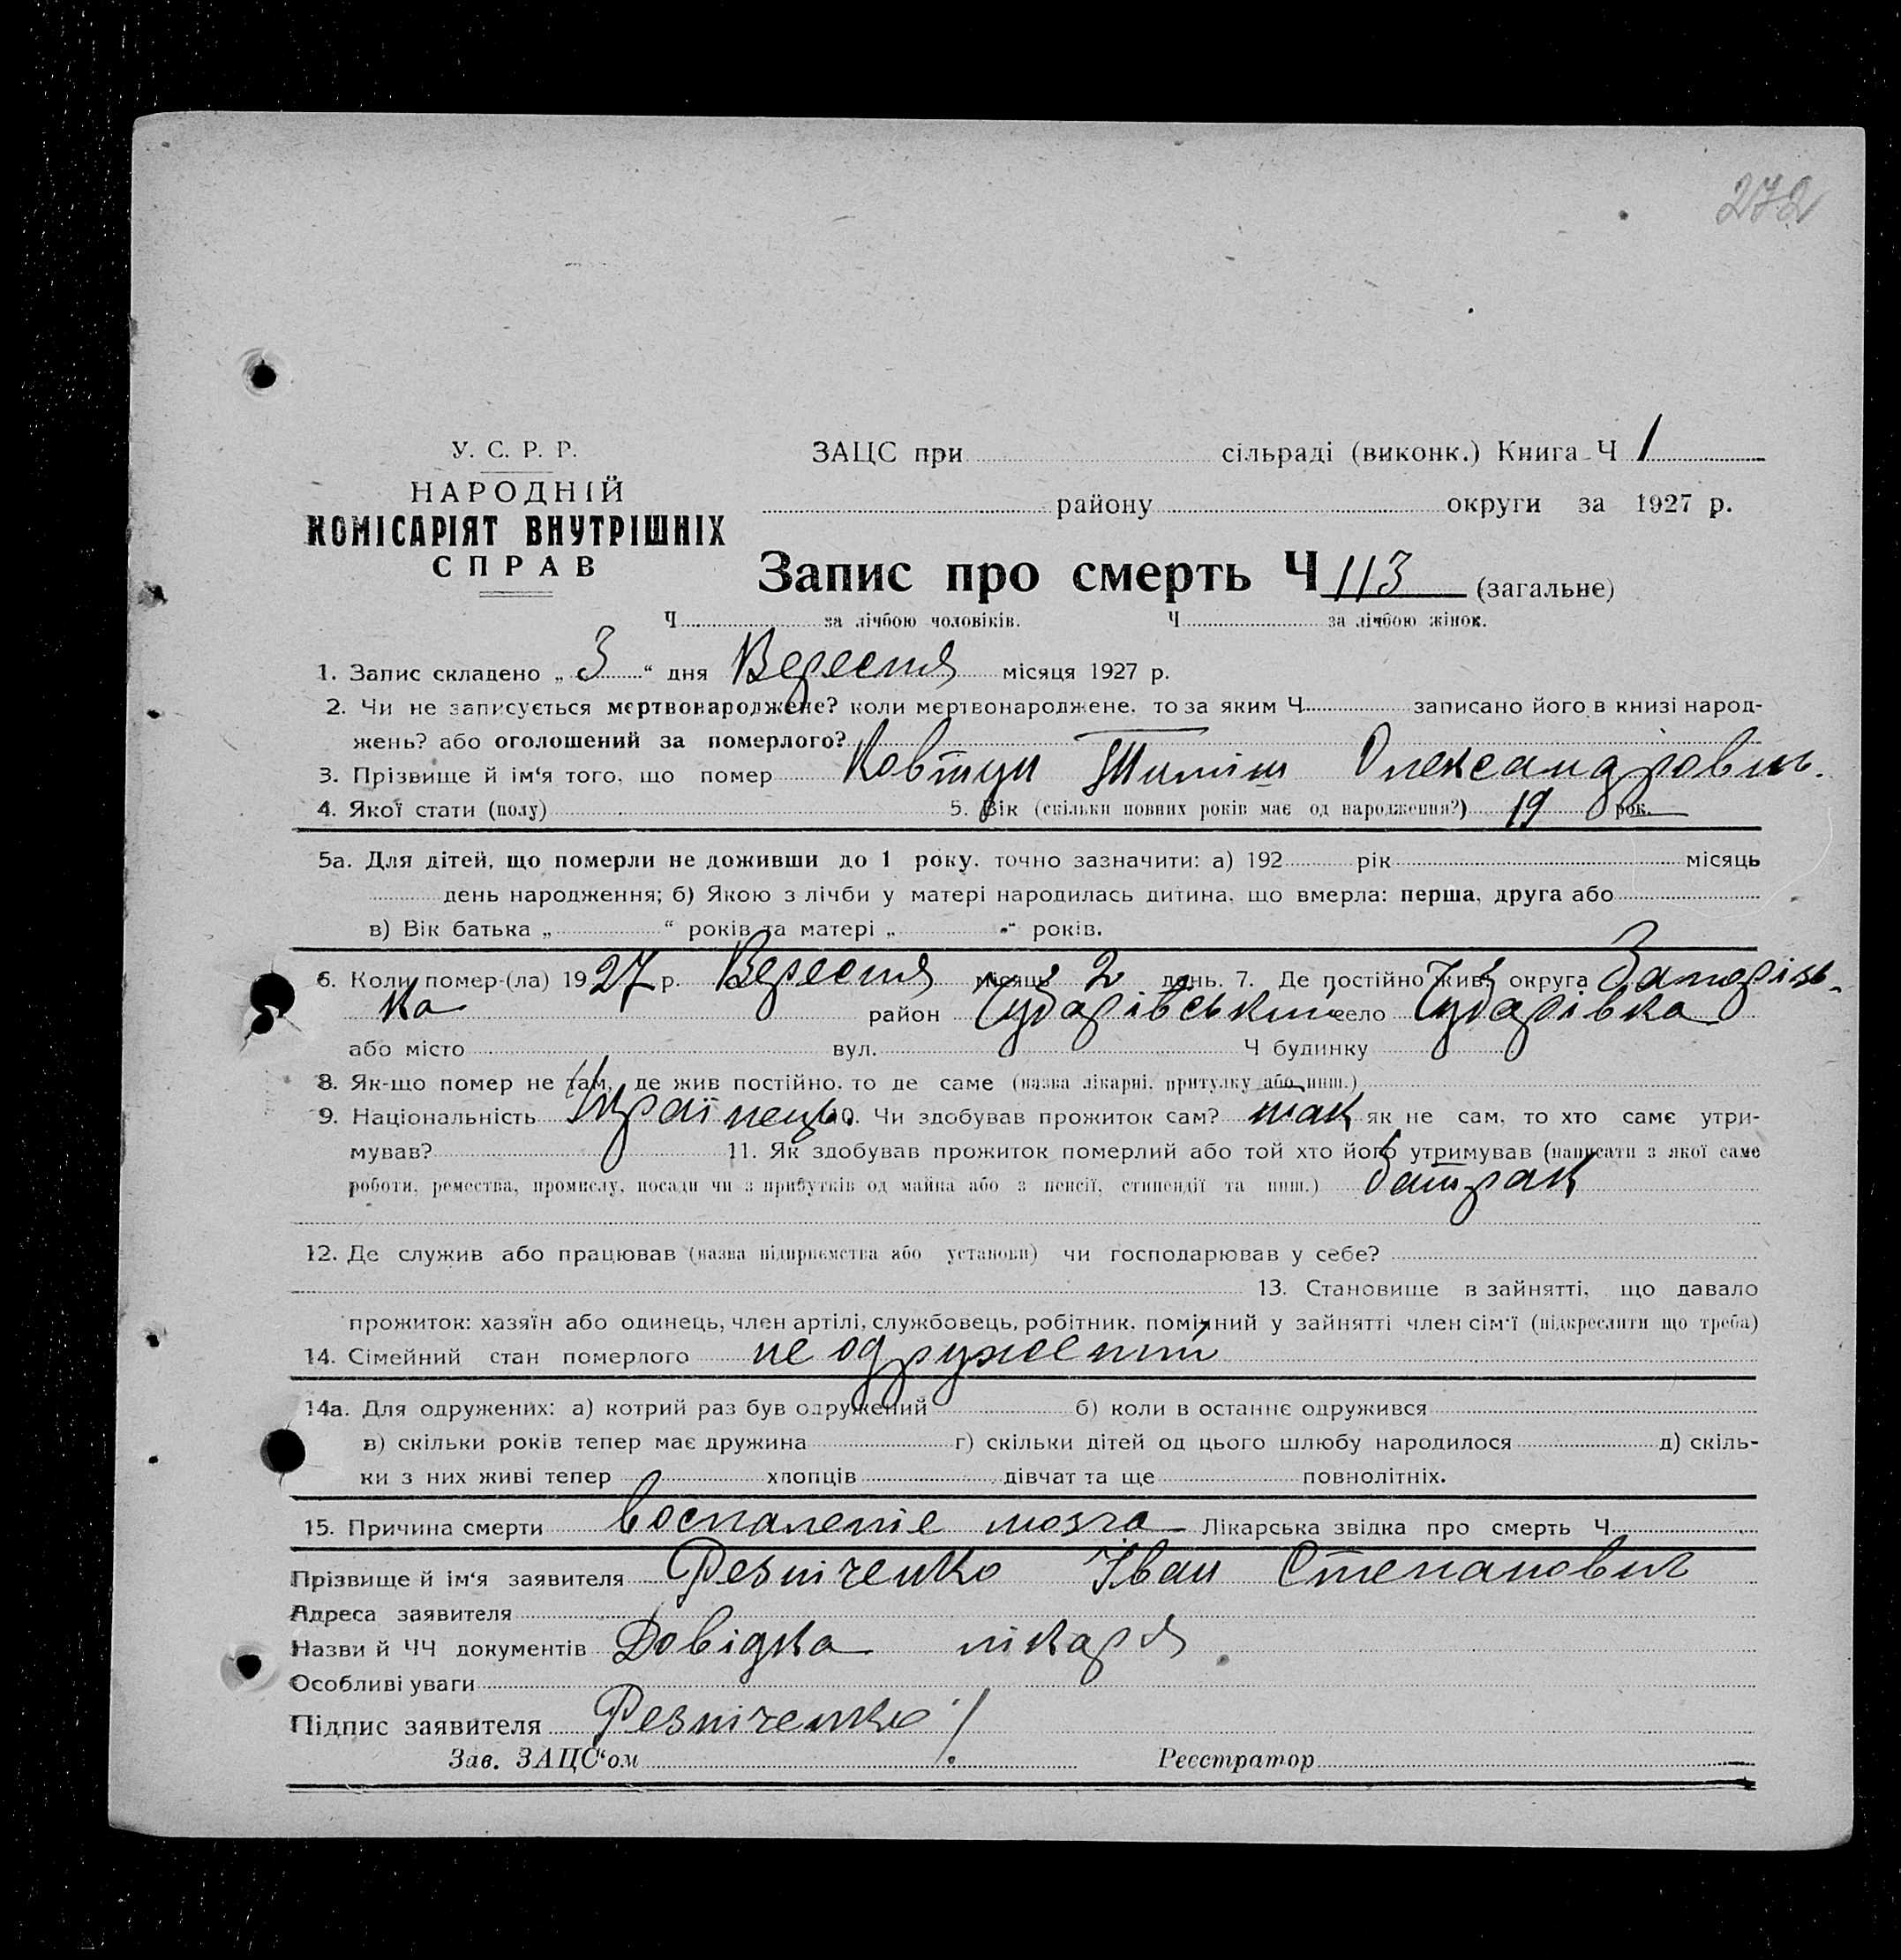 272
У. С. Р. Р.
НАРОДНІЙ
КОМІСАРІЯТ ВНУТРІШНІХ
СПРАВ
ЗАЦС при сільраді (виконк.) Книга Ч 1
району округи за 1927 р.
Запис про смерть Ч 113 (загальне)
Ч за лічбою чоловіків. Ч за лічбою жінок.
1. Запис складено „ 3 “ дня Вересня місяця 1927 р.
2. Чи не записується мертвонароджене? коли мертвонароджене, то за яким Ч записано його в книзі народ-
жень? або оголошений за померлого?
3. Прізвище й ім‘я того, що помер Ковтун Тиміш Олександрович.
4. Якої стати (полу) 5. Вік (скільки повних років має од народження?) 19 рок.
5а. Для дітей, що померли не доживши до 1 року, точно зазначити: а) 192 рік місяць
день народження; б) Якою з лічби у матері народилась дитина, що вмерла: перша, друга або
в) Вік батька „ “ років та матері „ “ років.
6. Коли помер-(ла) 1927 р. Вересня місяць 2 день. 7. Де постійно жив? округа Запоріж-
ка район село
або місто вул. Ч будинку
8. Як-що помер не там, де жив постійно, то де саме (назва лікарні, притулку або инш.)
9. Національність Українець. 10. Чи здобував прожиток сам? так як не сам, то хто саме утри-
мував? 11. Як здобував прожиток померлий або той хто його утримував (написати з якої саме
роботи, ремества, промислу, посади чи з прибутків од майна або з пенсії, стипендії та инш.) батрак
12. Де служив або працював (назва підприємства або установи) чи господарював у себе?
13. Становище в зайнятті, що давало
прожиток: хазяїн або одинець, член артілі, службовець, робітник, помічний у зайнятті член сім‘ї (підкреслити що треба)
14. Сімейний стан померлого не одружений
14а. Для одружених: а) котрий раз був одружений б) коли в останнє одружився
в) скільки років тепер має дружина г) скільки дітей од цього шлюбу народилося д) скіль-
ки з них живі тепер хлопців дівчат та ще повнолітніх.
15. Причина смерти воспаленіе мозга Лікарська звідка про смерть Ч
Прізвище й ім‘я заявителя Резниченко Іван Степанович
Адреса заявителя
Назви й ЧЧ документів Довідка лікаря
Особливі уваги
Підпис заявителя Резниченко
Зав. ЗАЦС‘ом Реєстратор